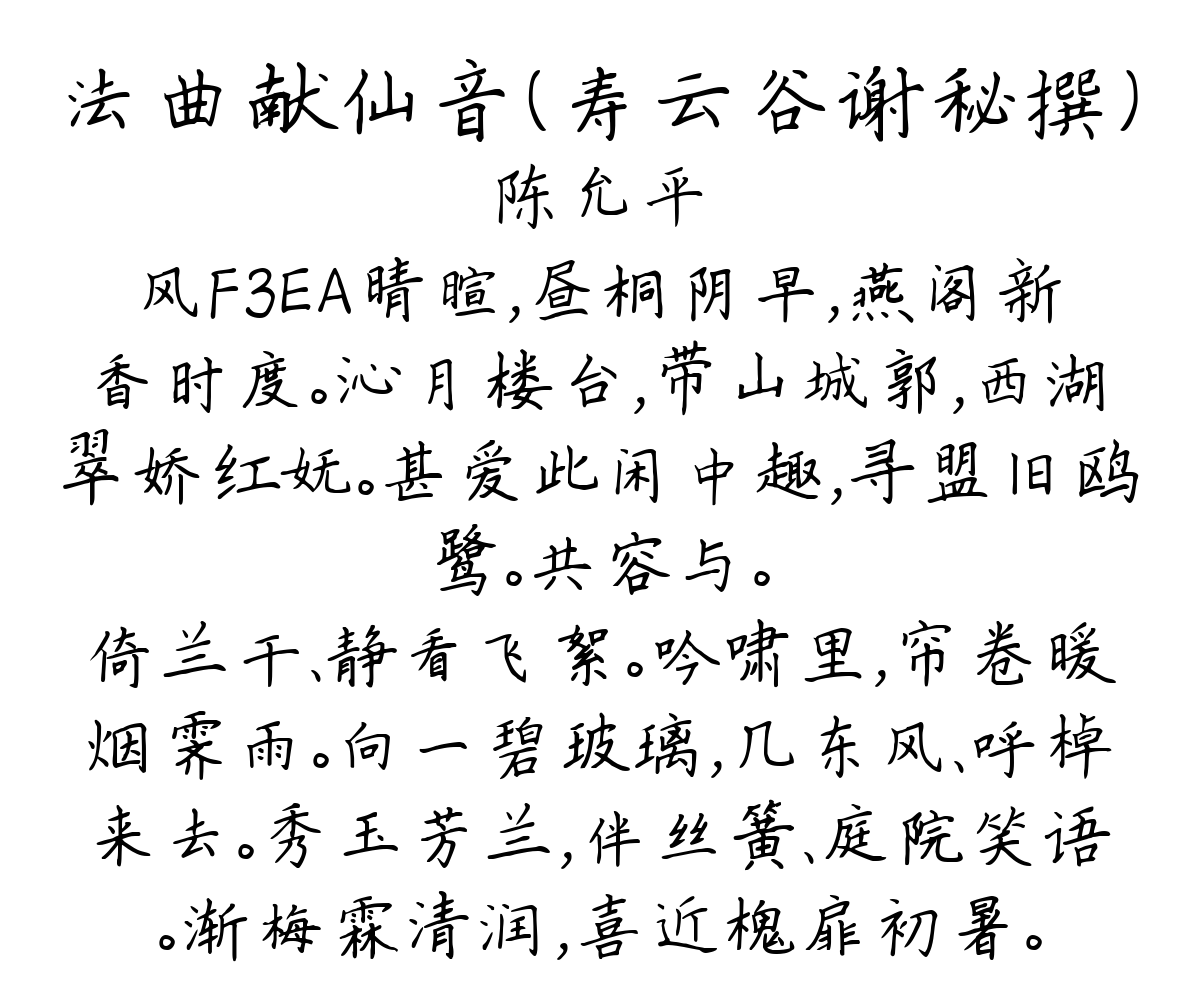 法曲献仙音(寿云谷谢秘撰)
陈允平
风F3EA晴暄,昼桐阴早,燕阁新
香时度。沁月楼台,带山城郭,西湖
翠娇红妩。甚爱此闲中趣,寻盟旧鸥
鹭。共容与。
倚兰干、静看飞絮。吟啸里,帘卷暖
烟霁雨。向一碧玻璃,几东风、呼棹
来去。秀玉芳兰,伴丝簧、庭院笑语
。渐梅霖清润,喜近槐扉初暑。